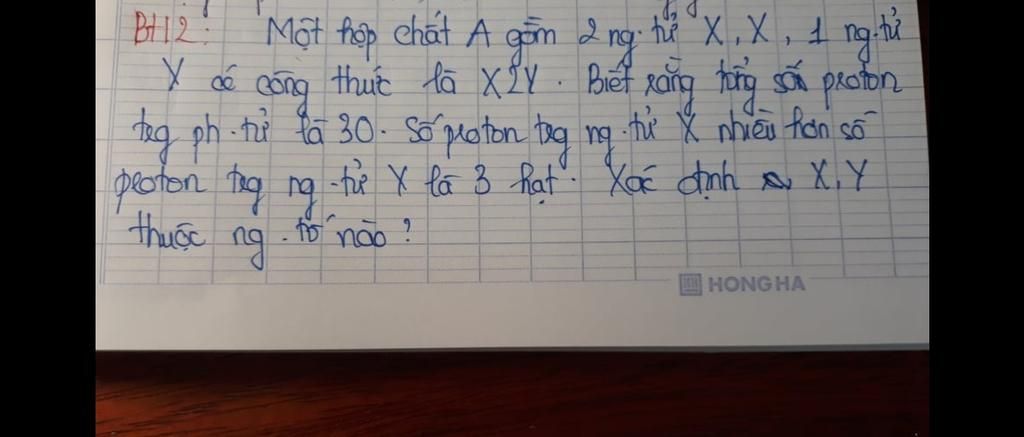 BT12: Một hợp chất A gồm 2 ng.tử X, X, 1 ng.tử
Y có công thức là X2Y. Biết rằng tổng số proton
trg ph.tử là 30. Số proton trg ng.tử X nhiều hơn số
proton trg ng.tử Y là 3 hạt. Xác định X, Y
thuộc ng.tố nào?
HONG HA